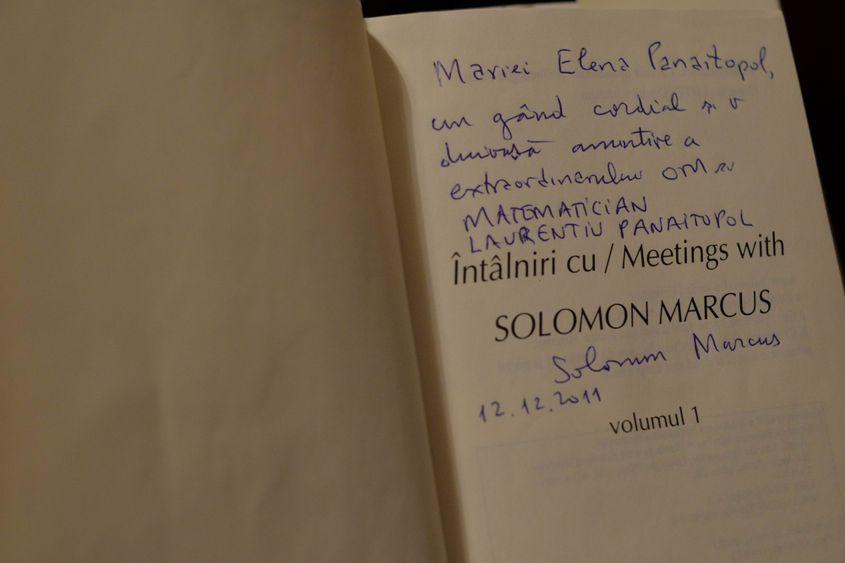 Mariei Elena Panaitopol,
un gând cordial și o
duioasă amintire a
extraordinarului OM și
MATEMATICIAN
LAURENTIU PANAITOPOL
Întâlniri cu / Meetings with
SOLOMON MARCUS
Solomon Marcus
12.12.2011
volumul 1